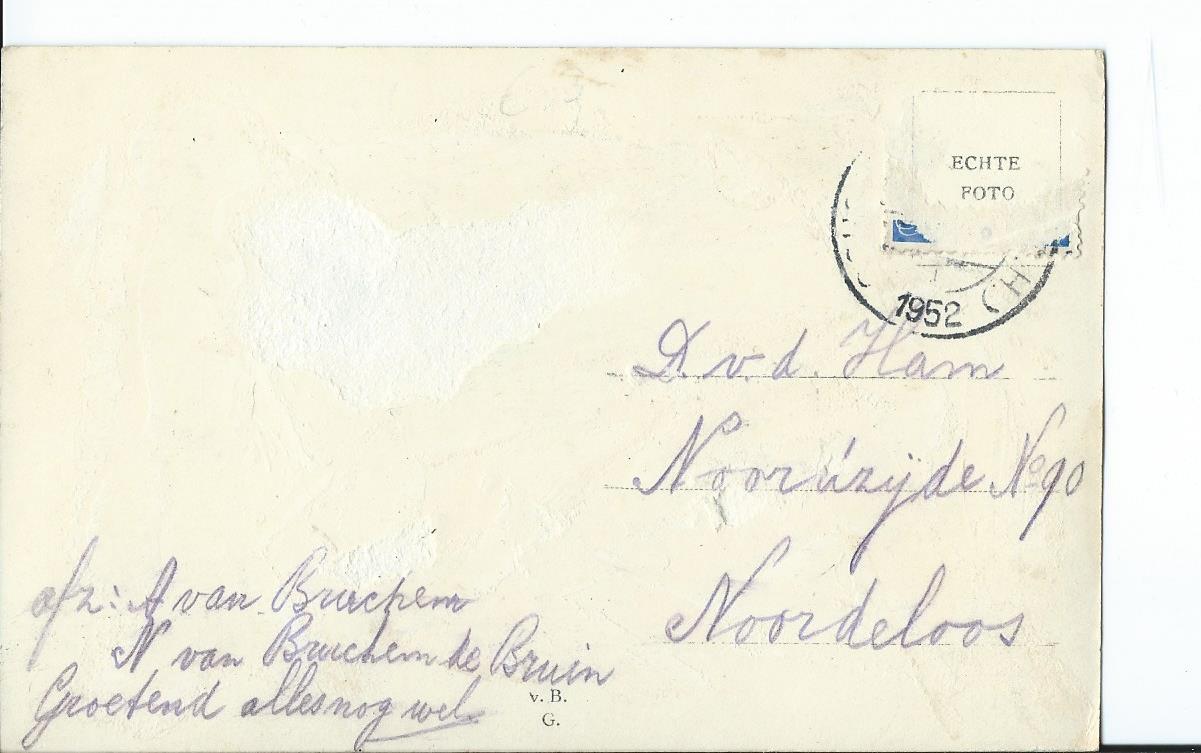 ECHTE
FOTO
1952
D. v. d. Ham
Noordzijde No 90
Noordeloos
afz: A van Bruchem
N van Bruchem de Bruin
Groetend alles nog wel
v. B.
G.